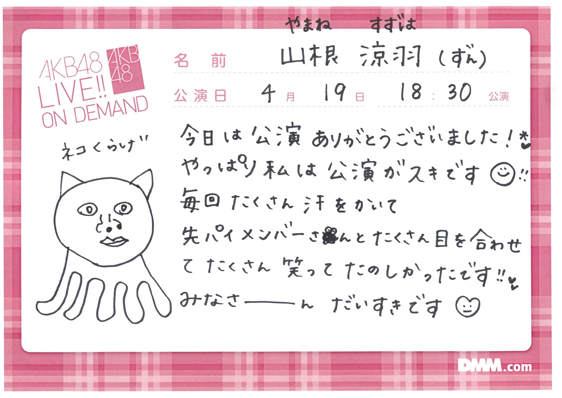 やまね すずは
名前 山根 涼羽 (ずん)
AKB48
LIVE!!
ON DEMAND
AKB
48
公演日 4月 19日 18:30 公演
今日は公演ありがとうございました!
やっぱり私は公演がスキです!!
毎回たくさん汗をかいて
先パイメンバーさんとたくさん目を合わせ
てたくさん笑ってたのしかったです!!
みなさーーーん だいすきです
ネコくらげ
DMM.com